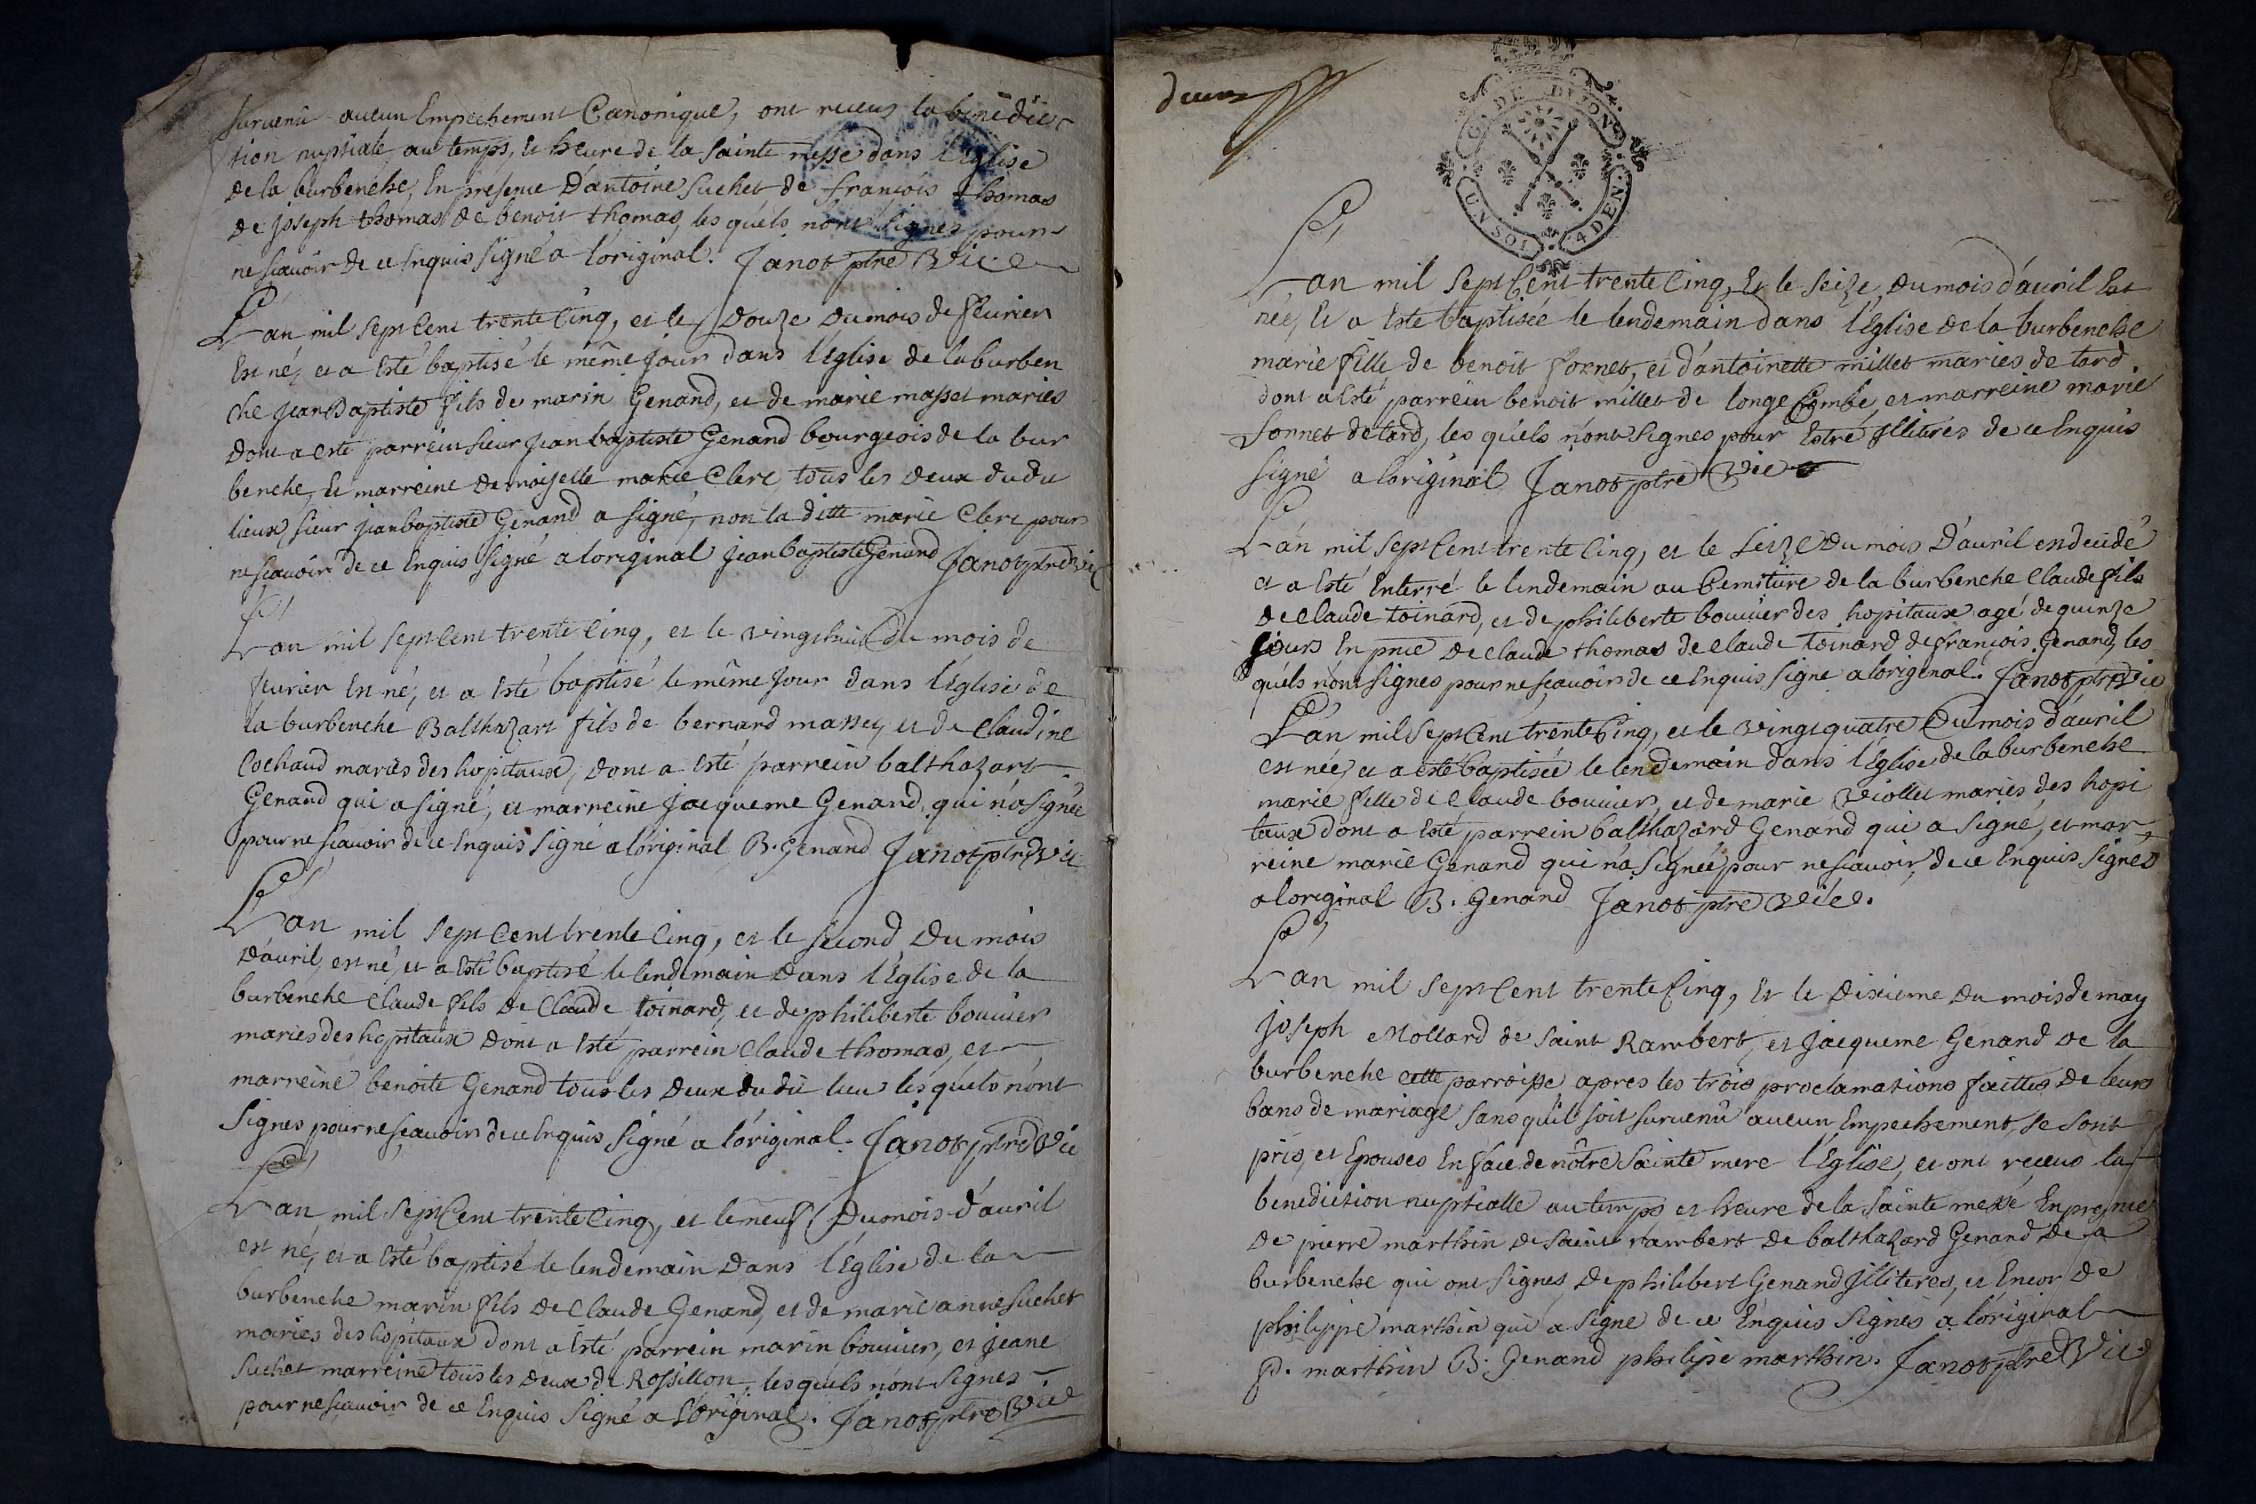 survenû aucun Empechement Canonique, ont receus la bénédic
tion nuptiale au temps, et heure de la sainte messe dans l'église
de la burbenche, En présence D'antoine suchet de françois thomas
de joseph thomas de benoit thomas, les quels n'ont signes pour
ne scavoir de ce Enquis signé a l'original. Janot ptre Vic
L'an mil sept Cent trente Cinq, et le Douze du mois de fevrier
Est né, et a Esté baptisé le même jour dans l'Eglise de la burben
che jean Baptiste fils de marin Genand, et de marie masset mariés
Dont a esté parrein sieur jean baptiste Genand bourgeois de la bur
benche, Et marreine Demoiselle marie Clerc tous les deux dudit
lieux, sieur jean baptiste Genand a signé, non la ditte marie Clerc pour
ne scavoir de ce Enquis signé a loriginal jean baptiste Genand Janot ptre vic
L'an mil sept Cent trente Cinq, et le vingt huit du mois de
fevrier Est né, et a Esté baptisé le même jour dans l'église de
la burbenche Balthazart fils de bernard masset, et de Claudine
Cochaud mariés des hopitaux, Dont a Esté parrein balthazart
Genand qui a signé, et marreine Jacqueme Genand, qui n'a signée
pour ne scavoir de ce Enquis signé a l'original B. Genand Janot ptre Vic
L'an mil sept Cent trente Cinq, et le second Du mois
D'avril, est né, et a Esté baptisé le lendemain Dans l'Eglise de la
burbenche Claude fils de Claude toinard, et de philiberte bouvier
mariés des hopitaux Dont a Esté parrein Claude thomas, et
marreine benoite Genand tous les Deux du dit lieu les quels n'ont
signes pour ne scavoir de ce Enquis signé a l'original. Janot ptre Vic
L'an mil sept Cent trente Cinq, et le neuf Du mois d'avril
est né, et a Esté baptisé le lendemain Dans l'Eglise de la
burbenche marin fils de Claude Genand, et de marie anne suchet
mariés des hôpitaux dont a Esté parrein marin bouvier, et jeane
suchet marreine tous les deux de Rossillon, les quels n'ont signes
pour ne scavoir de ce Enquis signé a l'original. Janot ptre Vic
deux
G. DE DIJON
UN SOL 4 DEN
L'an mil sept Cent trente Cinq, Et le seize, du mois d'avril Est
née, Et a Esté baptisée le lendemain dans l'Eglise de la burbenche
marie fille de benoit fornet, et d'antoinette millet mariés de tard
dont a Esté parrein benoit millet de longe Combe, et marreine marie
fornet de tard, les quels n'ont signes pour Estre Illitérés de ce Enquis
signé a l'original Janot ptre Vic
L'an mil sept Cent trente Cinq, et le seize Du mois D'avril en decidé
et a Esté Enterré le lendemain au Cemitiere de la burbenche Claude fils
de Claude toinard, et de philiberte bouvier des hopitaux agé de quinze
jours En pnce de Claude thomas de Claude toinard de françois Genand, les
quels n'ont signes pour ne scavoir de ce Enquis signé a l'original. Janot ptre Vic
L'an mil sept Cent trente Cinq, et le vingt quatre Du mois d'avril
est née, et a esté baptisée le lendemain dans l'Eglise de la burbenche
marie fille de Claude bouvier, et de marie Viollet mariés des hopi
taux dont a Esté parrein balthazard Genand qui a signé, et mar
reine marie Genand qui n'a signée pour ne scavoir de ce Enquis signés
a loriginal B. Genand Janot ptre Vic.
L'an mil sept Cent trente Cinq, Et le Dixieme Du mois de may
joseph Mollard de saint Rambert, et jacqueme Genand de la
burbenche cette parroisse apres les trois proclamations faittes de leurs
bans de mariage sans qu'il soit survenû aucun Empechement, se sont
pris, et Epousés En face de nôtre sainte mere l'Eglise, et ont receus la
benediction nuptialle au temps et heure de la sainte messe En presence
de pierre marthin de saint rambert de balthazard Genand de la
burbenche qui ont signes, De philibert Genand Illiteres, et Encor de
philippe marthin qui a signé de ce Enquis signés a l'original
P. marthin B. Genand philipe marthin. Janot ptre Vic.